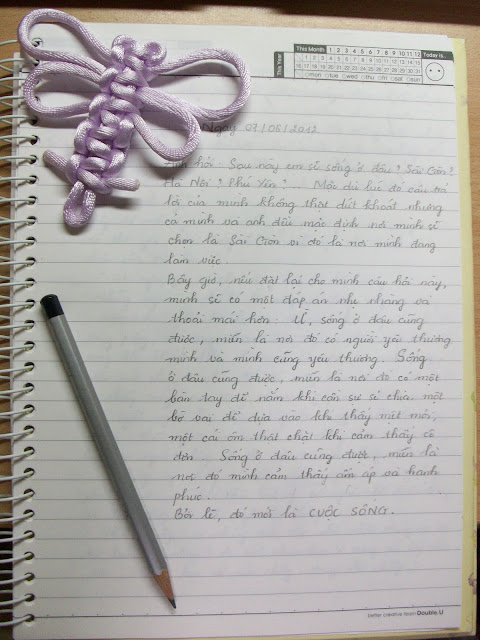 This Month 1 2 3 4 5 6 7 8 9 10 11 12 Today is..
This Year
1 2 3 4 5 6 7 8 9 10 11 12 13 14 15
16 17 18 19 20 21 22 23 24 25 26 27 28 29 30 31
□mon □tue □wed □thu □fri □sat □sun
Ngày 07/08/2012
Anh hỏi: Sau này em sẽ sống ở đâu? Sài Gòn?
Hà Nội? Phú Yên?... Mặc dù lúc đó câu trả
lời của mình không thật dứt khoát nhưng
cả mình và anh đều mặc định nơi mình sẽ
chọn là Sài Gòn vì đó là nơi mình đang
làm việc.
Bây giờ, nếu đặt lại cho mình câu hỏi này,
mình sẽ có một đáp án nhẹ nhàng và
thoải mái hơn: Ừ, sống ở đâu cũng
được, miễn là nơi đó có người yêu thương
mình và mình cũng yêu thương. Sống
ở đâu cũng được, miễn là nơi đó có một
bàn tay để nắm khi cần sự sẻ chia, một
bờ vai để dựa vào khi thấy mệt mỏi,
một cái ôm thật chặt khi cảm thấy cô
đơn. Sống ở đâu cũng được, miễn là
nơi đó mình cảm thấy ấm áp và hạnh
phúc.
Bởi lẽ, đó mới là CUỘC SỐNG.
better creative team Double.U